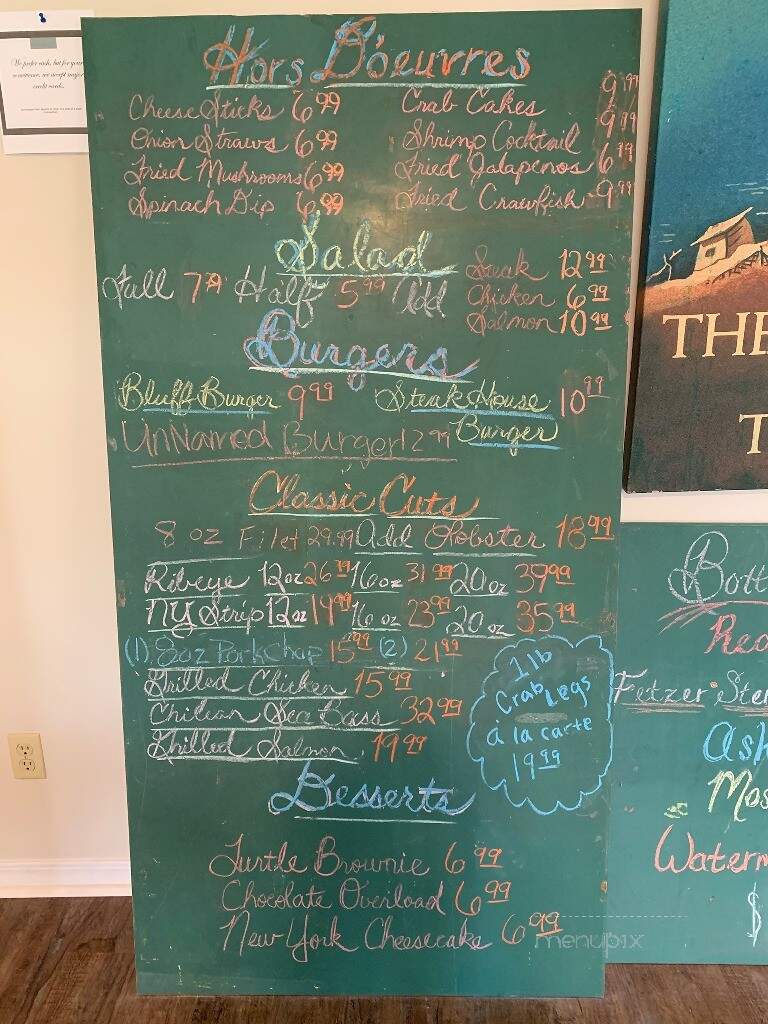 We prefer cash, but for your
convenience, we accept major
credit cards.
Hors D'oeuvres
Cheese Sticks 6.99 Crab Cakes 9.99
Onion Straws 6.99 Shrimp Cocktail 9.99
Fried Mushrooms 6.99 Fried Jalapenos 6.99
Spinach Dip 6.99 Fried Crawfish 9.99
Salad
Full 7.99 Half 5.99 Add Steak 12.99
Chicken 6.99
Salmon 10.99
Burgers
Bluff Burger 9.99 SteakHouse Burger 10.99
UnNamed Burger 12.99
Classic Cuts
8 oz Filet 29.99 add Lobster 18.99
Ribeye 12oz 26.99 16oz 31.99 20oz 39.99
NY Strip 12oz 19.99 16 oz 23.99 20 oz 35.99
(1) 8oz Pork Chop 15.99 (2) 21.99
Grilled Chicken 15.99
Chilean Sea Bass 32.99
Grilled Salmon 19.99
1 lb
Crab Legs
á la carte
19.99
Desserts
Turtle Brownie 6.99
Chocolate Overload 6.99
New York Cheesecake 6.99
menupix
THE
T
Bott
Red
Fetzer Ster
Ash
Mos
Waterm
$